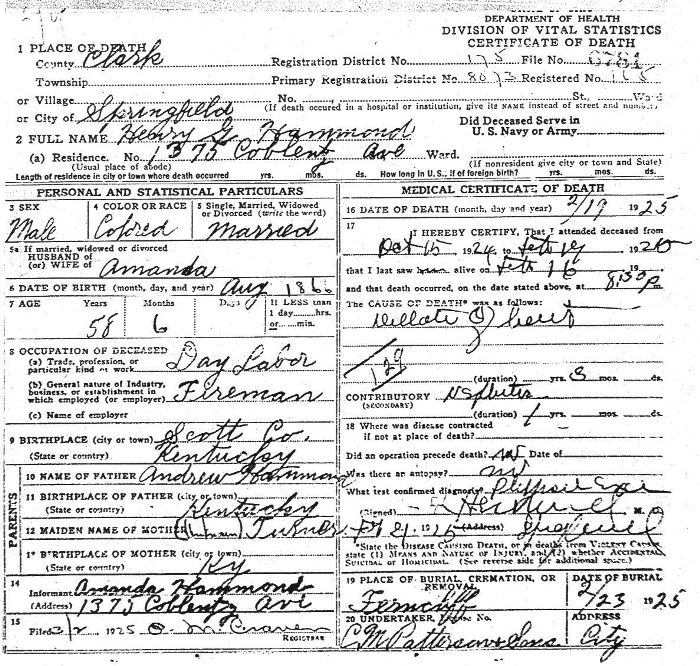 DEPARTMENT OF HEALTH
DIVISION OF VITAL STATISTICS
CERTIFICATE OF DEATH
1 PLACE OF DEATH
County Clark
Registration District No. 175 File No.
Township
Primary Registration District No. 8073 Registered No. 165
or Village No. St., Ward
or City of Springfield
(If death occurred in a hospital or institution, give its NAME instead of street and number)
2 FULL NAME Henry G. Hammond
Did Deceased Serve in
U. S. Navy or Army
(a) Residence. No. 1375 Coblentz Ave Ward.
(Usual place of abode)
(If nonresident give city or town and State)
Length of residence in city or town where death occurred yrs. mos. ds. How long in U. S., if of foreign birth? yrs. mos. ds.
PERSONAL AND STATISTICAL PARTICULARS
3 SEX
4 COLOR OR RACE
5 Single, Married, Widowed
or Divorced (write the word)
Male Colored Married
5a If married, widowed or divorced
HUSBAND of
(or) WIFE of Amanda
6 DATE OF BIRTH (month, day, and year) Aug 1866
7 AGE Years Months Days If LESS than
1 day......hrs.
or......min.
58 6
8 OCCUPATION OF DECEASED
(a) Trade, profession, or
particular kind of work Day Labor
(b) General nature of Industry,
business, or establishment in
which employed (or employer) Fireman
(c) Name of employer
9 BIRTHPLACE (city or town) Scott Co.
(State or country) Kentucky
PARENTS
10 NAME OF FATHER Andrew Hammond
11 BIRTHPLACE OF FATHER (city or town)
(State or country) Kentucky
12 MAIDEN NAME OF MOTHER Turner
13 BIRTHPLACE OF MOTHER (city or town)
(State or country) Ky
14
Informant Amanda Hammond
(Address) 1375 Coblentz Ave
15
Filed 3/2 1925 O. McCraven
REGISTRAR
MEDICAL CERTIFICATE OF DEATH
16 DATE OF DEATH (month, day and year) 2/19 1925
17
I HEREBY CERTIFY, That I attended deceased from
Oct 15 1924 to Feb 19 1925
that I last saw alive on Feb 16 19
and that death occurred, on the date stated above, at 8:30 p m.
The CAUSE OF DEATH* was as follows:
129
(duration) yrs. 3 mos. ds.
CONTRIBUTORY Nephritis
(SECONDARY)
(duration) 1 yrs. mos. ds.
18 Where was disease contracted
if not at place of death?
Did an operation precede death? no Date of
Was there an autopsy? no
What test confirmed diagnosis?
(Signed) M. D.
1925 (Address)
*State the DISEASE CAUSING DEATH, or in deaths from VIOLENT CAUSES
state (1) MEANS AND NATURE OF INJURY, and (2) whether ACCIDENTAL,
SUICIDAL or HOMICIDAL. (See reverse side for additional space.)
19 PLACE OF BURIAL, CREMATION, OR
REMOVAL
DATE OF BURIAL
Ferncliff 2/23 1925
20 UNDERTAKER, License No. ADDRESS
C M Patterson & Sons City